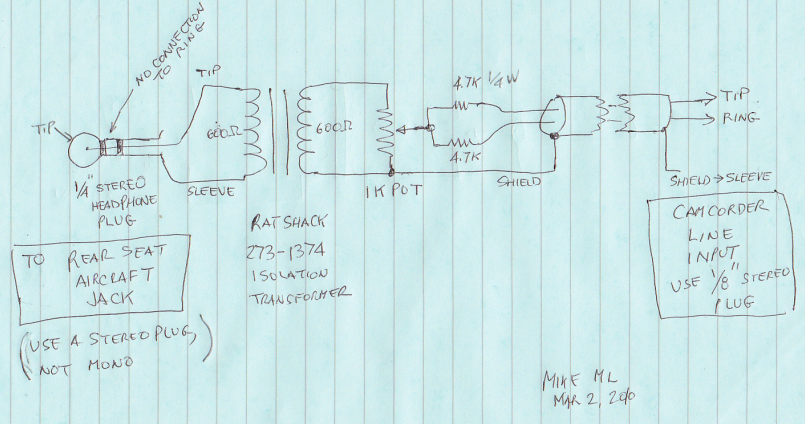 NO CONNECTION
TO RING
TIP
TIP
600Ω
600Ω
4.7K 1/4 W
4.7K
TIP
RING
1/4" STEREO
HEADPHONE
PLUG
SLEEVE
1K POT
SHIELD
SHIELD → SLEEVE
RAT SHACK
273-1374
ISOLATION
TRANSFORMER
TO REAR SEAT
AIRCRAFT
JACK
(USE A STEREO PLUG,
NOT MONO)
CAMCORDER
LINE
INPUT
USE 1/8" STEREO
PLUG
MIKE ML
MAR 2, 2010